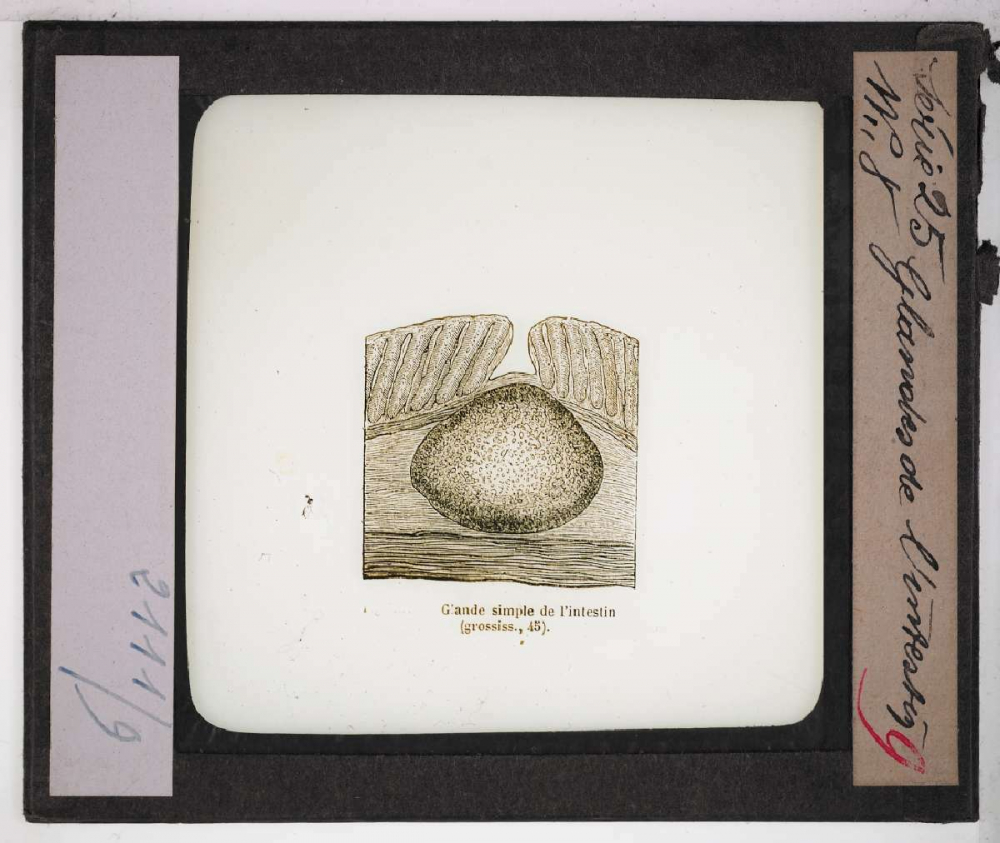 G'ande simple de l'intestin
(grossiss., 45).
Série 25 Glandes de l'intestin
N° 8
9
2111/9